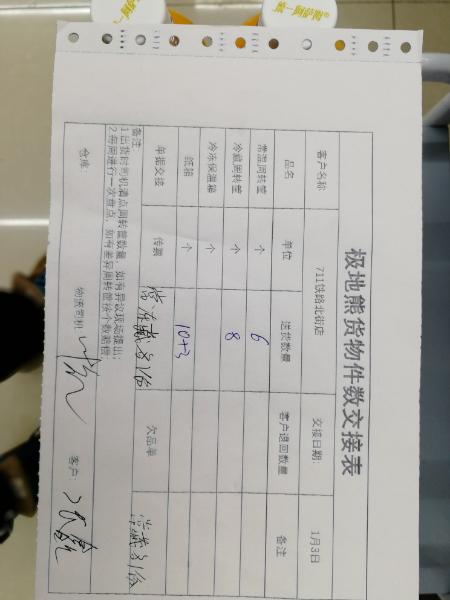 第一阿萨姆®
极地熊货物件数交接表
客户名称 711铁路北街店 交接日期: 1月3日
品名 单位 送货数量 客户退回数量 备注
常温周转筐 个 6
冷藏周转筐 个 8
冷冻保温箱 个
纸箱 个 10+3
单据交接 传票 常冷藏各1份 欠品单 常藏各1份
备注
1.出货时司机清点周转筐数量,如有异议现场提出;
2.每周进行一次盘点,如有差异周转筐按个数赔偿;
仓库: 物流司机: 客户: